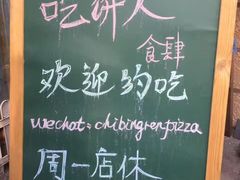 吃饼人
食肆
欢迎约吃
wechat:chibingrenpizza
周一店休